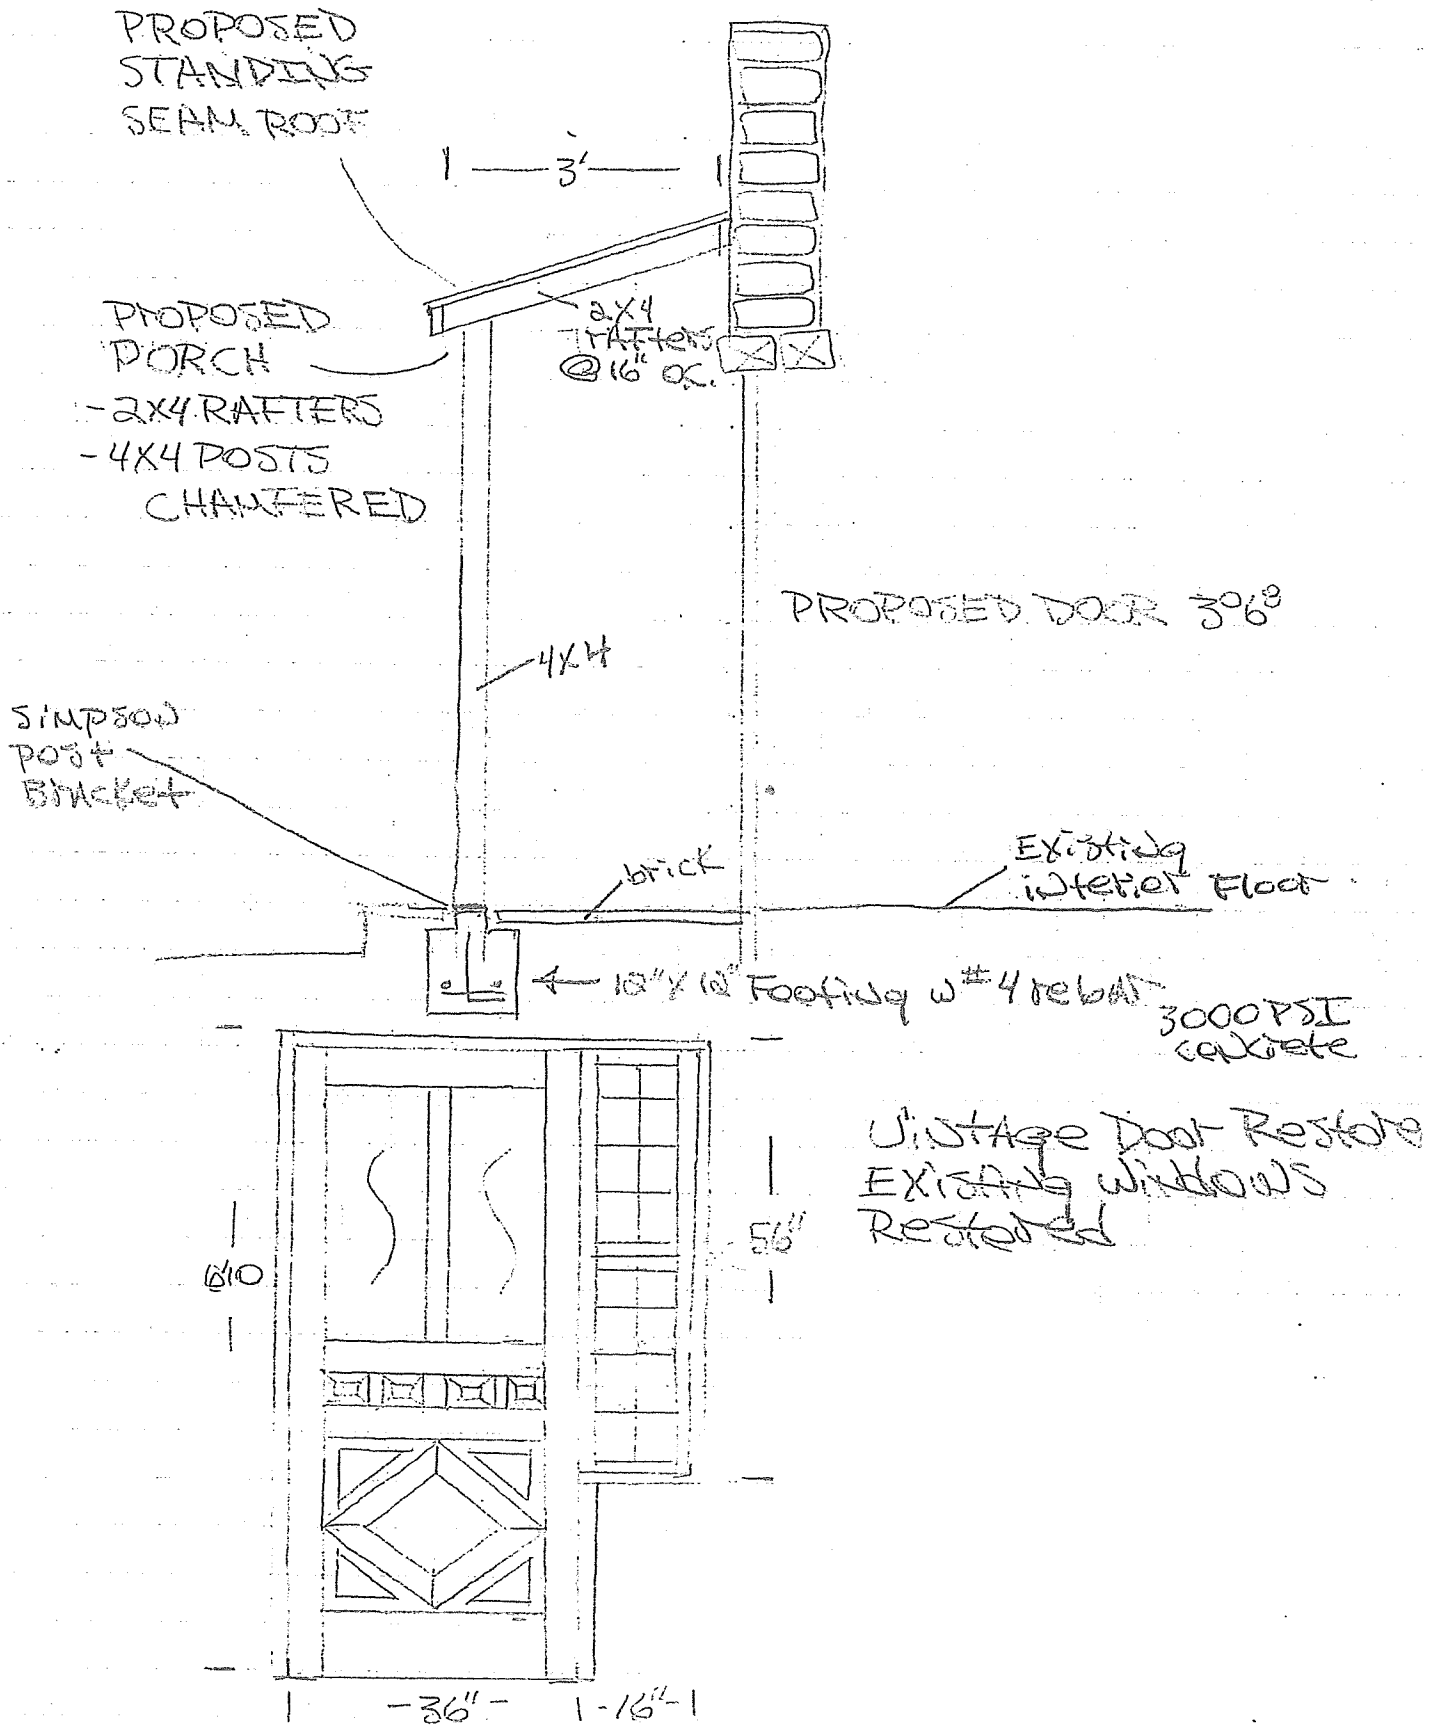 PROPOSED
STANDING
SEAM ROOF
3'
PROPOSED
PORCH
-2X4 RAFTERS
-4X4 POSTS
CHAMFERED
2X4
rAfters
@16" O.C.
PROPOSED DOOR 3⁰6⁸
4X4
SIMPSON
POST
BrAcket
brick
Existing
interior Floor
Footing w #4 rebAr
3000 PSI
concrete
VintAge Door Restore
Existing windows
Restored
56"
-36"-
-16"-